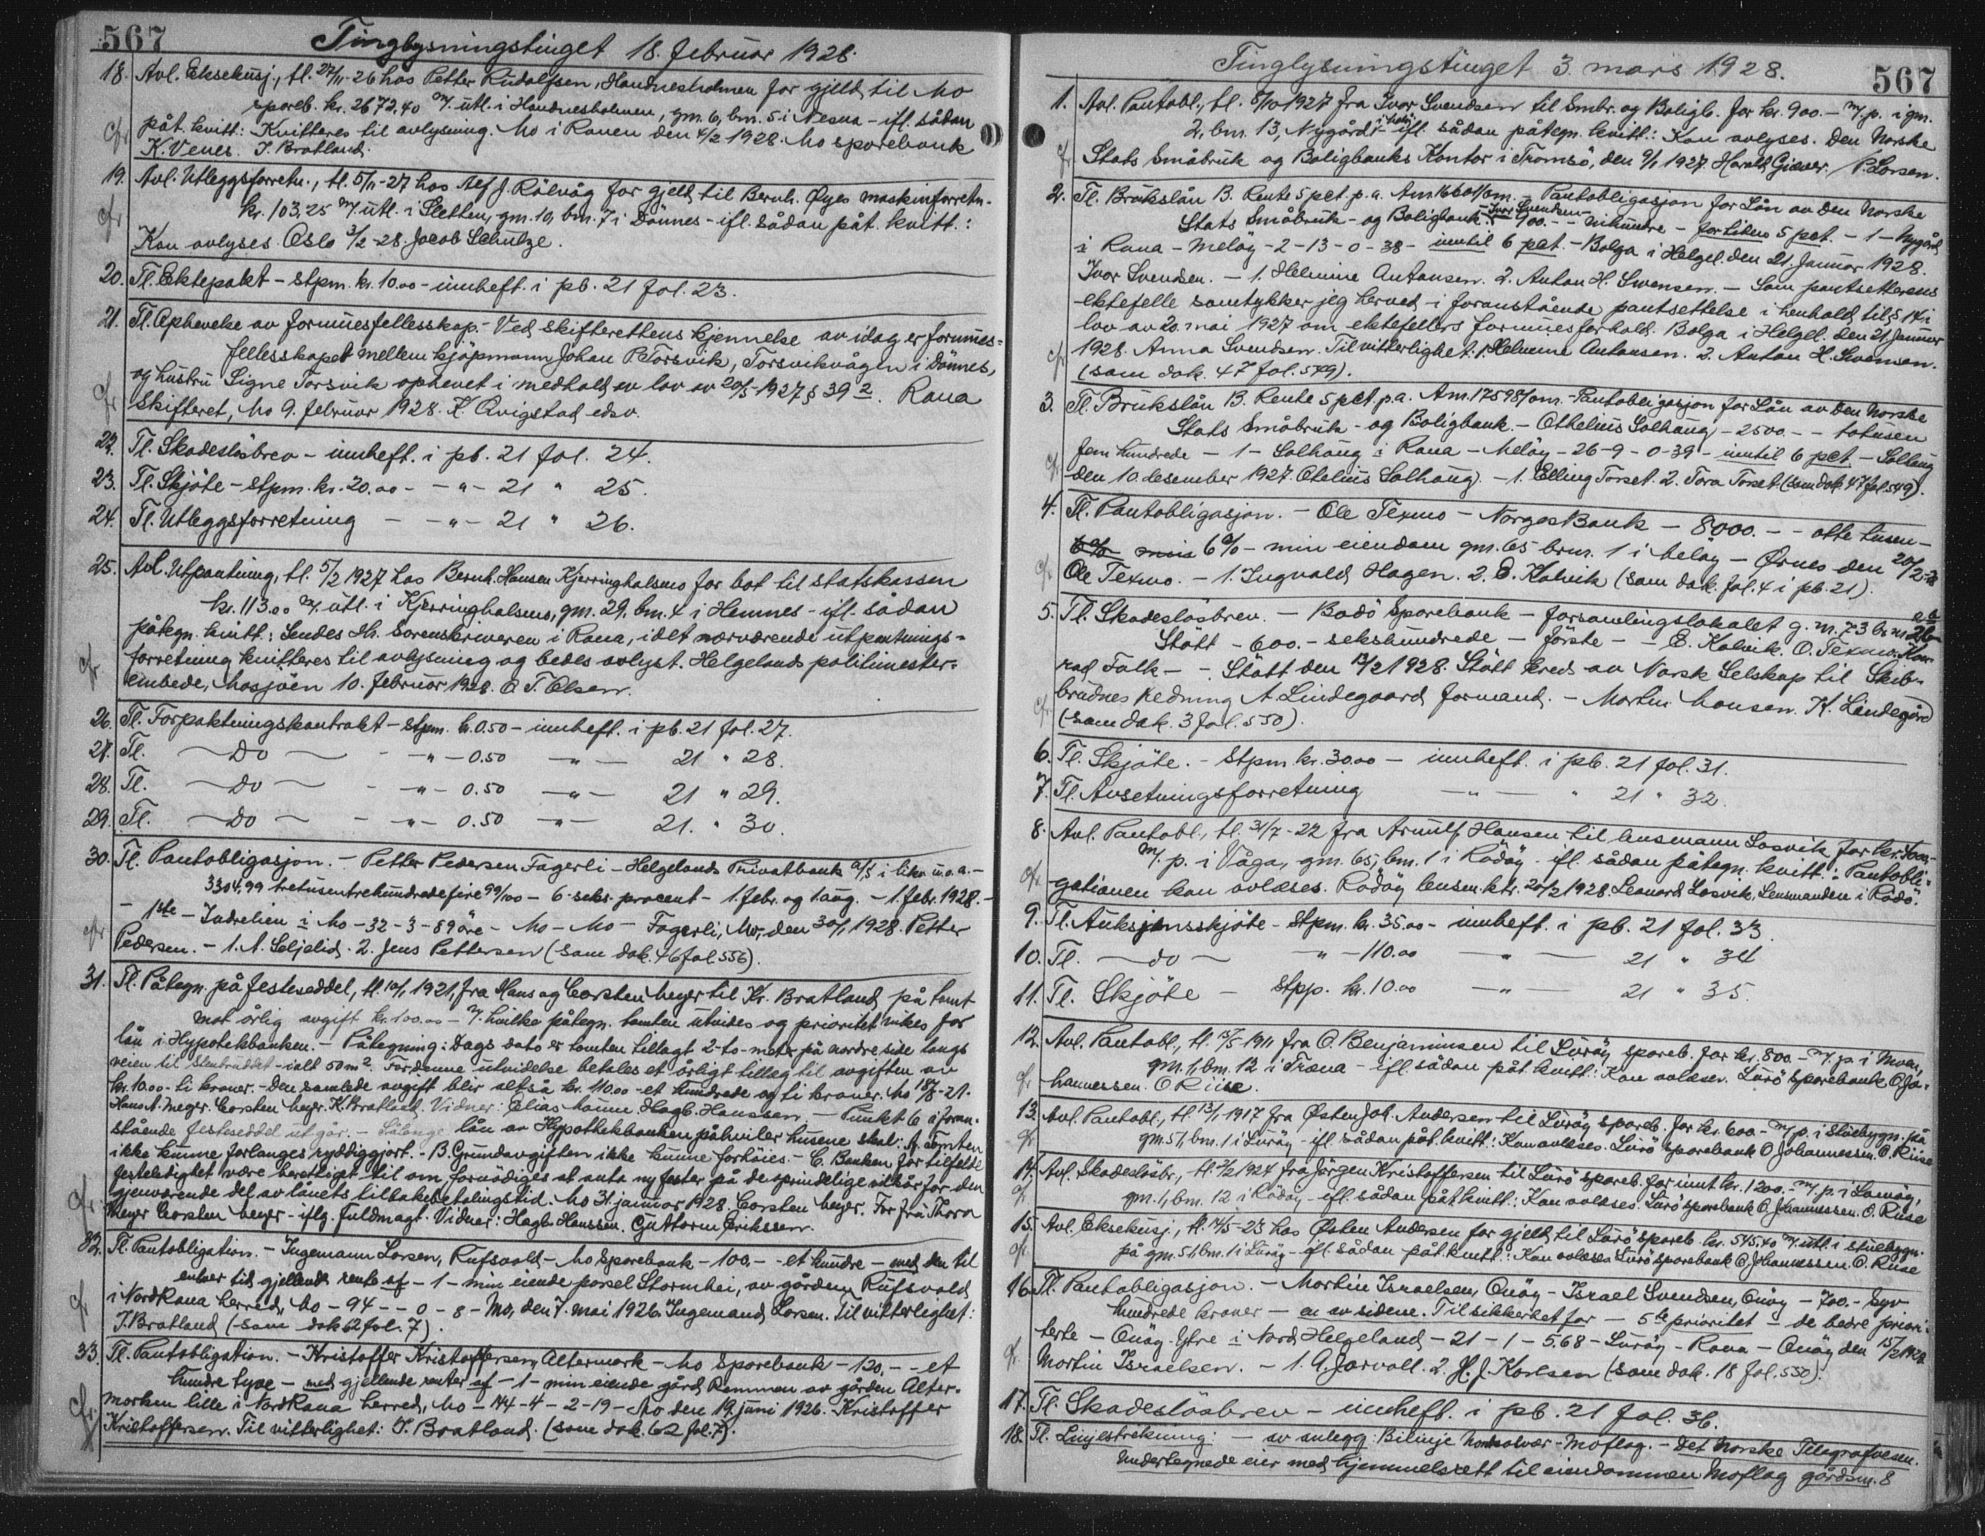 567
Tinglysningstinget 18. februar 1928.
18. Avl. Eksekusj., tl. 27/11-26 hos Petter Rudolfsen, Handnesholmen for gjeld til Mo
spareb. kr. 2672,40 m/. utl. i Handnesholmen, gm. 6, bm. 5 i Nesna - ifl. sådan
påt. kvitt: Kvitteres til avlysning. Mo i Ranen den 4/2 1928. Mo sparebank
K. Venes. J. Bratland.
19. Avl. Utleggsforretn., tl. 5/11-27 hos Alf J. Rölvåg for gjeld til Bernh. Øyes maskinforretn.
kr. 103,25 m/. utl. i Sletten, gm. 10, bm. 7 i Dönnes - ifl. sådan påt. kvitt.:
Kan avlyses. Oslo 3/2-28. Jacob Schultze.
20. Tl. Ektepakt - stpm. kr. 10.00 - innheft. i pb. 21 fol. 23.
21. Tl. Ophevelse av formuesfellesskap. - Ved skifterettens kjennelse av idag er formues=
fellesskapet mellem kjöpmann Johan P. Torsvik, Torsvikvågen i Dönnes,
og hustru Signe Torsvik ophevet i medhold av lov av 20/5-1927 § 39 2. Rana
skifteret, Mo 9. februar 1928. K. Qvigstad edsv.
22. Tl. Skadeslösbrev - innheft. i pb. 21 fol. 24.
23. Tl. Skjöte - stpm. kr. 20.00 - - " - 21 " 25.
24. Tl. Utleggsforretning - - " - 21 " 26.
25. Avl. Utpantning, tl. 5/2 1927 hos Bernh. Hansen Kjerringhalsmo for bot til statskassen
kr. 113.00 m/. utl. i Kjerringhalsmo, gm. 29, bm. 4 i Hemnes - ifl. sådan
påtegn. kvitt: Sendes Hr. Sorenskriveren i Rana, idet nærværende utpantnings=
forretning kvitteres til avlysning og bedes avlyst. Helgelands politimester=
embede, Mosjöen 10. februar 1928. O. T. Olsen.
26. Tl. Forpaktningskontrakt - stpm. kr. 0.50 - innheft. i pb. 21 fol. 27.
27. Tl. - Do - - " - 0.50 - " - 21 " 28.
28. Tl. - Do - - " - 0.50 - " - 21 " 29.
29. Tl. - Do - - " - 0.50 - " - 21. " 30.
30. Tl. Pantobligasjon. - Petter Pedersen Fagerli - Helgelands Privatbank A/S i likv. u.o.a. -
3304,99 tretusentrehundredefire 99/100 - 6 seks procent - 1. febr. og 1. aug. - 1. febr. 1928. -
- 1ste - Indrelien i Mo - 32 - 3 - 89 öre - Mo - Mo - Fagerli, Mo, den 30/1 1928. Petter
Pedersen. - 1. A. Seljelid. 2. Jens Pettersen (som dok. 46 fol. 556).
31. Tl. Påtegn. på festeseddel, tl. 10/1 1921, fra Hans og Corsten Meyer til Kr. Bratland på tomt
mot årlig avgift kr. 100.00 - m/. hvilke påtegn. tomten utvides og prioritet vikes for
lån i Hypotekbanken. - Påtegning: Dags dato er tomten tillagt 2-to-meter på nordre side langs
veien til Stenbruddet - ialt 50 m². For denne utvidelse betales et årligt tillæg til avgiften av
kr. 10.00 - ti kroner. - Den samlede avgift blir altså kr. 110.00 - et hundrede og ti kroner. Mo 18/8-21.
Hans A. Meyer. Corsten Meyer. K. Bratland. Vidner: Elias Haugh. Hanssen. - Punkt 6 i foran-
stående festeseddel utgår. - Sålenge lån av Hypothekbanken påhviler husene skal: A. tomten
ikke kunne forlanges ryddiggjort. - B. Grundavgiften ikke kunne forhöies. - C. Banken for tilfelde
festeledighet være berettiget til om fornödiges at anta ny fester på de oprindelige vilkår for den
gjenværende del av lånets tilbakebetalingstid. Mo 31. januar 1928. Corsten Meyer. For fru Thora
Meyer Corsten Meyer - iflg. fuldmagt. Vidner: Hagb. Hanssen. Guttorm Eriksen.
32. Tl. Pantobligation. - Ingemann Larsen, Rufsvold - Mo Sparebank - 100. - - et hundre - med den til
enhver tid gjellende rente af - 1 - min eiende parsel Stormhei, av gården Rufsvold
i NordRana herred, Mo - 94 - - 0 - 8 - Mo, den 7. mai 1926. Ingemand Larsen. Til vitterleghet:
J. Bratland (som dok 62 fol. 7).
33. Tl. Pantobligation. - Kristoffer Kristoffersen, Altermark - Mo Sparebank - 120, - - et
hundre tyve - med gjellende renter af - 1 - min eiende gård Remmen av gården Alter-
marken lille i NordRana herred, Mo - 44 - 4 - 2 - 19 - Mo den 19. juni 1926. Kristoffer
Kristoffersen. Til vitterlighet: J. Bratland. (som dok. 62 fol. 7).
Tinglysningstinget 3. mars 1928.
567
1. Avl. Pantobl., tl. 8/10 1927 fra Ivar Svendsen til Småbr. og Boligb. for kr. 900. - m/. p. i gm.
2, bm. 13, Nygård i - ifl. sådan påtegn. kvitt.: Kan avlyses. Den Norske
Stats Småbruk og Boligbanks Kontor i Tromsö, den 9/1 1927. Harald Giæver. / P. Larsen.
2. Tl. Brukslån B. Rente 5 pct. p.a. - Pantobligasjon for Lån av Den Norske
Stats Småbruk - og Boligbank - Ivar Svendsen - 900. - - nihundre - for tiden 5 pct. - 1 - Nygård
i Rana - Melöy - 2 - 13 - 0 - 38 - inntil 6 pct. - Bolga i Helgel. den 21. Januar 1928.
Ivar Svendsen. - 1. Helmine Antonsen. 2. Anton H. Svensen. - Som pantsetterens
ektefelle samtykker jeg herved i foranstående pantsettelse i henhold til § 14 i
lov av 20. mai 1927 om ektefellers formuesforhold. Bolga i Helgel. den 21. Januar
1928. Anna Svendsen. Til vitterlighet: 1. Helmine Antonsen. 2. Anton H. Svensen.
(som dok. 47 fol. 549).
3. Tl. Brukslån B. Rente 5 pct. p.a. - Pantobligasjon for Lån av Den Norske
Stats Småbruk - og Boligbank - Othelius Solhaug - 2500 - - totusen
fem hundrede - 1 - Solhaug i Rana - Melöy - 26 - 9 - 0 - 39 - inntil 6 pct - Solhaug
den 10. desember 1927. Othelius Solhaug. - 1. Elling Torset. 2. Tora Torset (som dok. 47 fol. 549).
4. Tl. Pantobligasjon. - Ole Texmo - Norges Bank - 8000. - - otte tusen -
6% - min eiendom gm. 65 brm. 1 i Meløy - Ørnes den 20/2-28
Ole Texmo. - 1. Ingvald Hagen. 2. E. Kalvik (som dok. fol. 4 i pb. 21).
5. Tl. Skadeslösbrev. - Bodö Sparebank - forsamlingslokalet g. nr. 73 br. nr 26
Stött - 600. - sekshundrede - förste - - E. Kalvik. O. Texmo. Kon-
rad Falk - - Stött den 13/2 1928. Stött kreds av Norsk Selskap til Skib-
brudnes Redning A. Lindegaard formand. - Martin Monsen. K. Lindegård
(som dok. 3 fol. 550).
6. Tl. Skjöte. - Stpm. kr. 30.00 - innheft. i pb. 21 fol. 31.
7. Tl. Avsetningsforretning - " - " 21 " 32.
8. Avl. Pantobl., tl. 31/7-22 fra Arnulf Hansen til lensmann Losvik for kr.
m/. p. i Våga, gm. 65, bm. 1 i Rödöy - ifl. sådan påtegn. kvitt.: Pantobli=
gationen kan avlæses. Rödöy lensm.ktr. 20/2 1928. Leonard Losvik, Lensmanden i Rödö.
9. Tl. Auksjonsskjöte - Stpm. kr. 35.00 - innheft. i pb. 21 fol. 33
10. Tl. - do - " - 110.00 - " - 21 " 34
11. Tl. Skjöte - Stpp. kr. 10.00 - " - 21 " 35.
12. Avl. Pantobl., tl. 15/5-1911 fra O. Benjaminsen til Luröy spareb. for kr. 800. - m/. p. i
gm. 1, bm. 12 i Træna - ifl. sådan påt. kvitt: Kan avlæses. Lurö Sparebank O. Jo-
hannessen. O. Riise.
13. Avl. Pantobl., tl. 13/1-1917 fra Østen Joh. Andersen til Luröy spareb. for kr. 600 - m/. p. i stuebygn. på
gm. 51, bm. 1 i Luröy - ifl. sådan påt. kvitt: Kan avlæses. Lurö Sparebank O. Johannessen. O. Riise
14. Avl. Skadeslösbr., tl. 2/2 1924 fra Jörgen Kristoffersen til Lurö spareb. for innt. kr. 1200. - m/. p. i
gm. 1, bm. 12 i Rödöy - ifl. sådan påt. kvitt: Kan avlæses. Lurö Sparebank O. Johannessen. O. Riise
15. Avl. Eksekusj., hos Østen Andersen for gjeld til Lurö spareb. kr. 545.40 m/. utl. i stuebygn.
på gm. 51, bm. 1 i Luröy - ifl. sådan påt. kvitt: Kan avlæses Lurö Sparebank O. Johannessen. O. Riise
16. Tl. Pantobligasjon. - Martin Israelsen, Onöy - Israel Svendsen, Onöy - 700. - syv
hundrede kroner - en av sidene. Til sikkerhet for - 5te prioritet - de bedre priori-
terte - Onöy Ytre i Nord Helgeland - 21 - 1 - 5.68 - Luröy - Rana - Onöy den 15/2 1928.
Martin Israelsen. - 1. A. Jarvoll. 2. H. J. Karlsen (som dok. 18 fol. 550).
17. Tl. Skadeslösbrev - innheft. i pb. 21 fol. 36.
18. Tl. Linjestrekning: - av anlegg: Bilinje - Moflag. - Det Norske Telegrafvesen.
Undertegnede eier med hjemmelsrett til eiendommen Moflag gårdsnr. 8